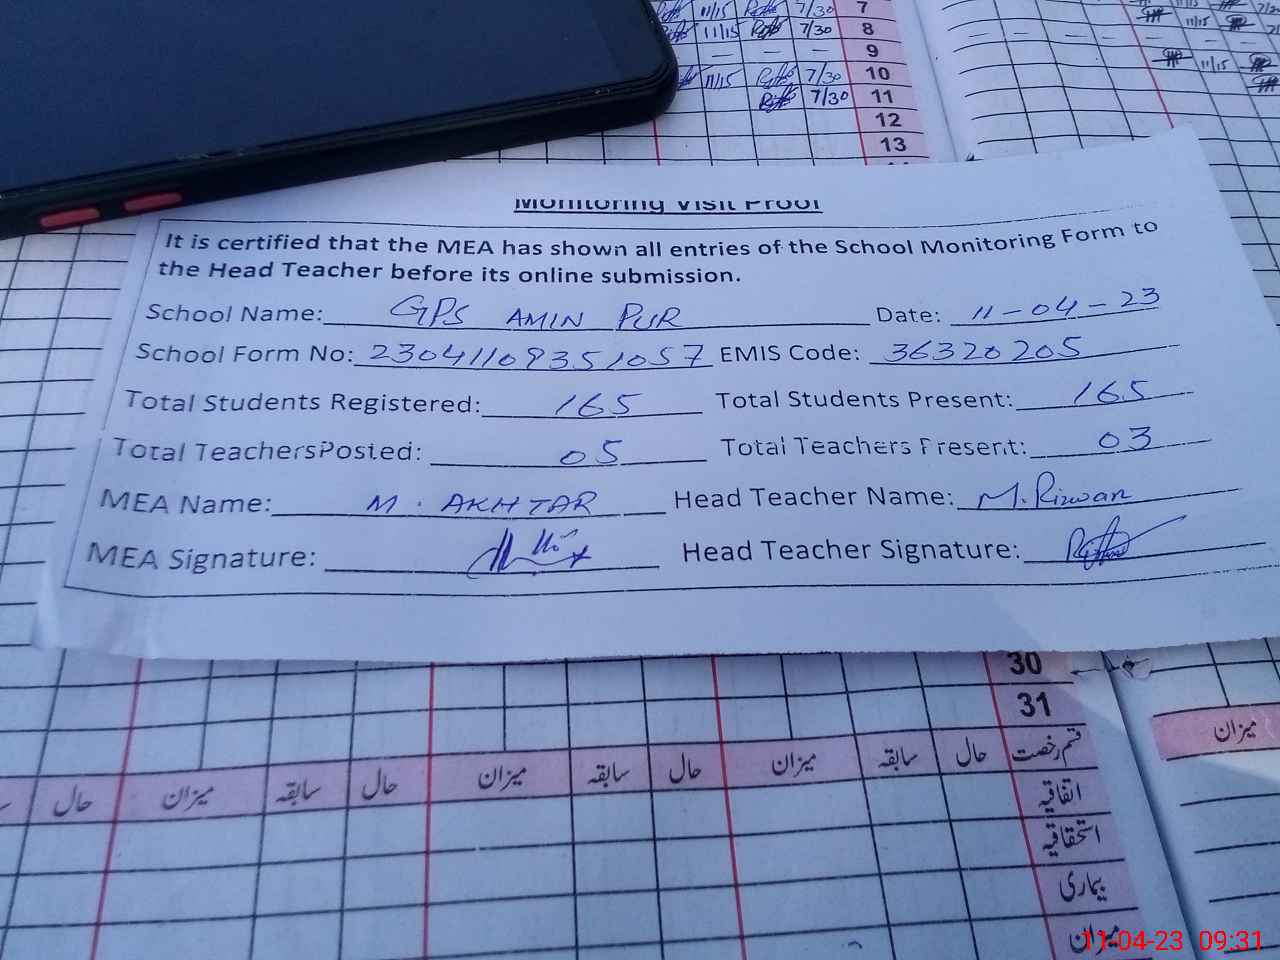 11/15 7/30 7
11/15 7/30 8
9
11/15 7/30 10
7/30 11
12
13
11/15
11/15
Monitoring Visit Proof
It is certified that the MEA has shown all entries of the School Monitoring Form to
the Head Teacher before its online submission.
School Name: GPS AMIN PUR Date: 11-04-23
School Form No: EMIS Code: 36320205
Total Students Registered: 165 Total Students Present: 165
Total TeachersPosted: 05 Total Teachers Present: 03
MEA Name: M. AKHTAR Head Teacher Name: M. Rizwan
MEA Signature: Head Teacher Signature:
30
31
قسم رخصت حال سابقہ میزان حال سابقہ میزان حال سابقہ میزان حال
میزان
اتفاقیہ
استحقاقیہ
بیماری
میزان
11-04-23 09:31